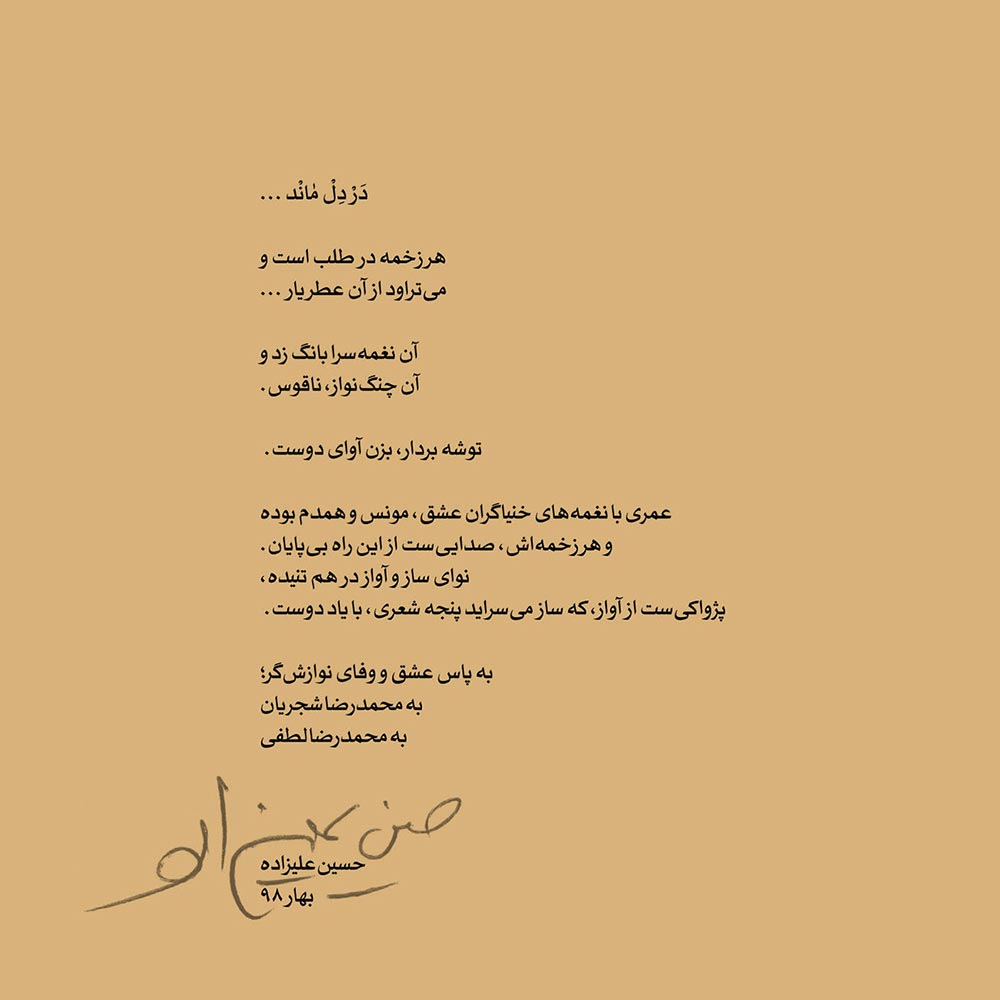 دَرْ دِلْ مٰانْد ...
هر زخمه در طلب است و
می‌تراود از آن عطر یار ...
آن نغمه‌سرا بانگ زد و
آن چنگ‌نواز، ناقوس.
توشه بردار، بزن آوای دوست.
عمری با نغمه‌های خنیاگران عشق، مونس و همدم بوده
و هر زخمه‌اش، صدایی‌ست از این راه بی‌پایان.
نوای ساز و آواز در هم تنیده،
پژواکی‌ست از آواز، که ساز می‌سراید پنجه شعری، با یاد دوست.
به پاس عشق و وفای نوازش‌گر؛
به محمدرضا شجریان
به محمدرضا لطفی
حسین علیزاده
حسین علیزاده
بهار ۹۸